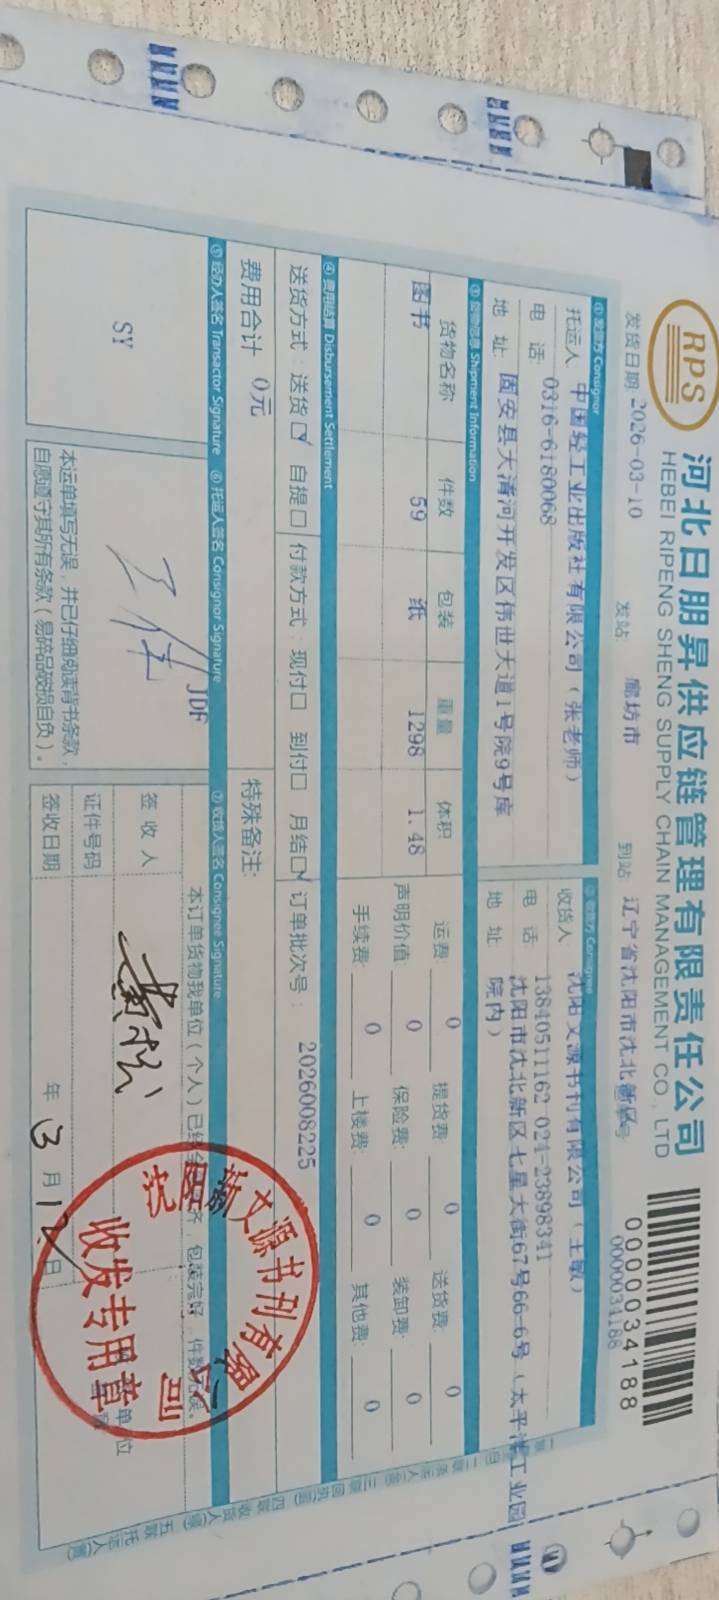 RPS
河北日朋昇供应链管理有限责任公司
HEBEI RIPENG SHENG SUPPLY CHAIN MANAGEMENT CO., LTD
0000034188
0000034188
发货日期 2026-03-10 发站 廊坊市 到站 辽宁省沈阳市沈北新区
① 发货方 Consignor ② 收货方 Consignee
托运人 中国轻工业出版社有限公司（张老师） 收货人 沈阳文源书刊有限公司（王敏）
电 话 0316-6180068 电 话 13840511162 024-23898341
地 址 固安县大清河开发区伟世大道1号院9号库 地 址 沈阳市沈北新区七星大街67号66-6号（太平洋工业园院内）
③ 货物信息 Shipment Information
货物名称 件数 包装 重量 体积 运费: 0 提货费: 0 送货费: 0
图书 59 纸 1298 1.48 声明价值 0 保险费: 0 装卸费: 0
手续费: 0 上楼费: 0 其他费: 0
④ 费用结算 Disbursement Settlement
送货方式: 送货☑ 自提□ 付款方式: 现付□ 到付□ 月结☑ 订单批次号: 2026008225
费用合计 0元 特殊备注:
⑤ 经办人签名 Transactor Signature ⑥ 托运人签名 Consignor Signature ⑦ 收货人签名 Consignee Signature
SY
JDF
本运单填写无误，并已仔细阅读背书条款，
自愿遵守其所有条款（易碎品破损自负）。
本订单货物我单位（个人）已经全 齐，包装完好，件数无误。
签收人
证件号码 单位
签收日期 年 3 月 12 日
沈阳新文源书刊有限公司
收发专用章